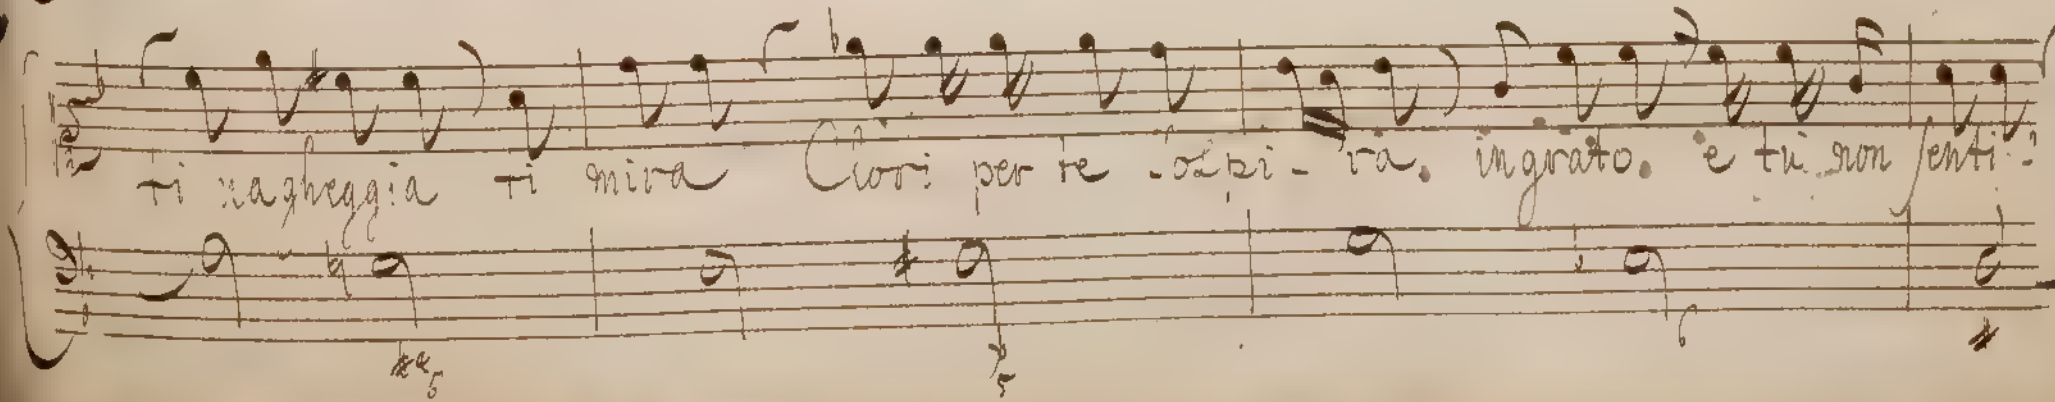 ti vagheggia ti mira Clori per te sospi-ra. ingrato. e tu non senti